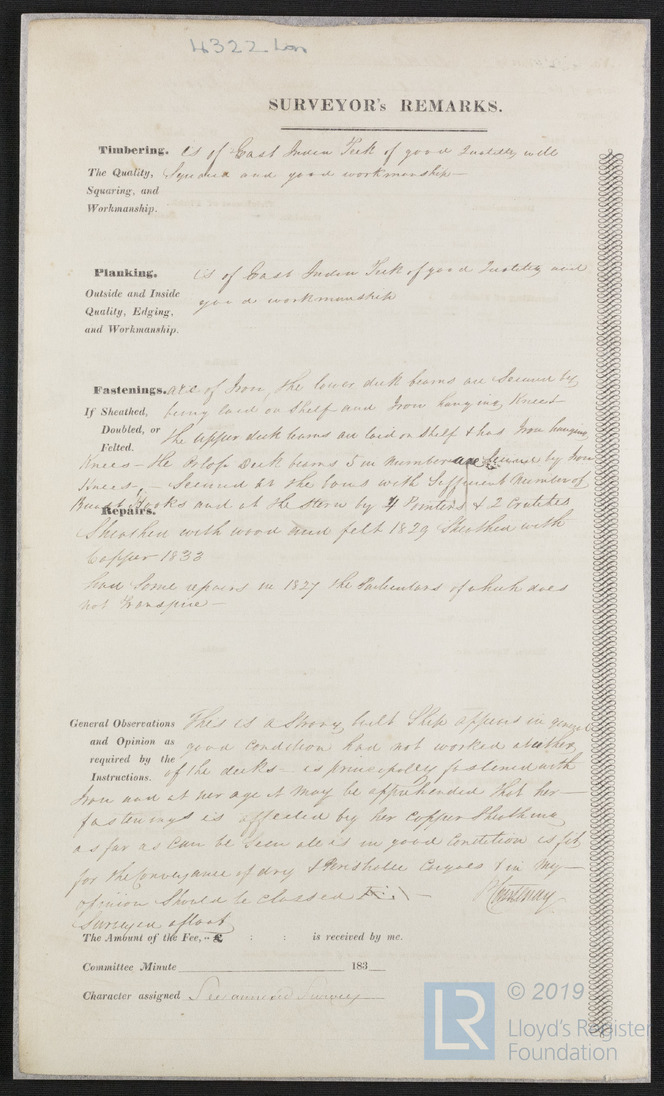 4322 Lon
SURVEYOR's REMARKS.
Timbering. is of East Indin Teek of good Quallity well
The Quality, Squared and good workmanship—
Squaring, and
Workmanship.
Planking. is of East Indin Teek of good Quality and
Outside and Inside good workmanship
Quality, Edging,
and Workmanship.
Fastenings. are of Iron, the lower deck beams are Secured by
If Sheathed, being laid on Shelf and Iron hanging Knees—
Doubled, or The Upper deck beams are laid on Shelf & has Iron hanging
Felted.
Knees— the Orlop Deck beams 5 in Number are Secured by Iron
Knees,— Secured at the bows with Sufficient Number of
Breast Hooks and at the Stern by 4 Pointers & 2 Crutches
Repairs.
Sheathed with wood and felt 1829 Sheathed with
Copper 1833
had Some repairs in 1827 the Particulars of which does
not transpire—
General Observations This is a Strong built Ship appears in general
and Opinion as good Condition had not worked at either
required by the of the decks— is principally fastened with
Instructions.
Iron and at her age it may be apprehended that her—
fastenings is affected by her Copper Sheathing
as far as Can be Seen all is in good Condition is fit
for the Conveyance of dry & Perishable Cargoes & in my—
opinion Should be Classed
Courtenay
Surveyed afloat
The Amount of the Fee, .. £ : : is received by me.
Committee Minute 183
Character assigned See annexed Survey
© 2019
LR
Lloyd's Register
Foundation